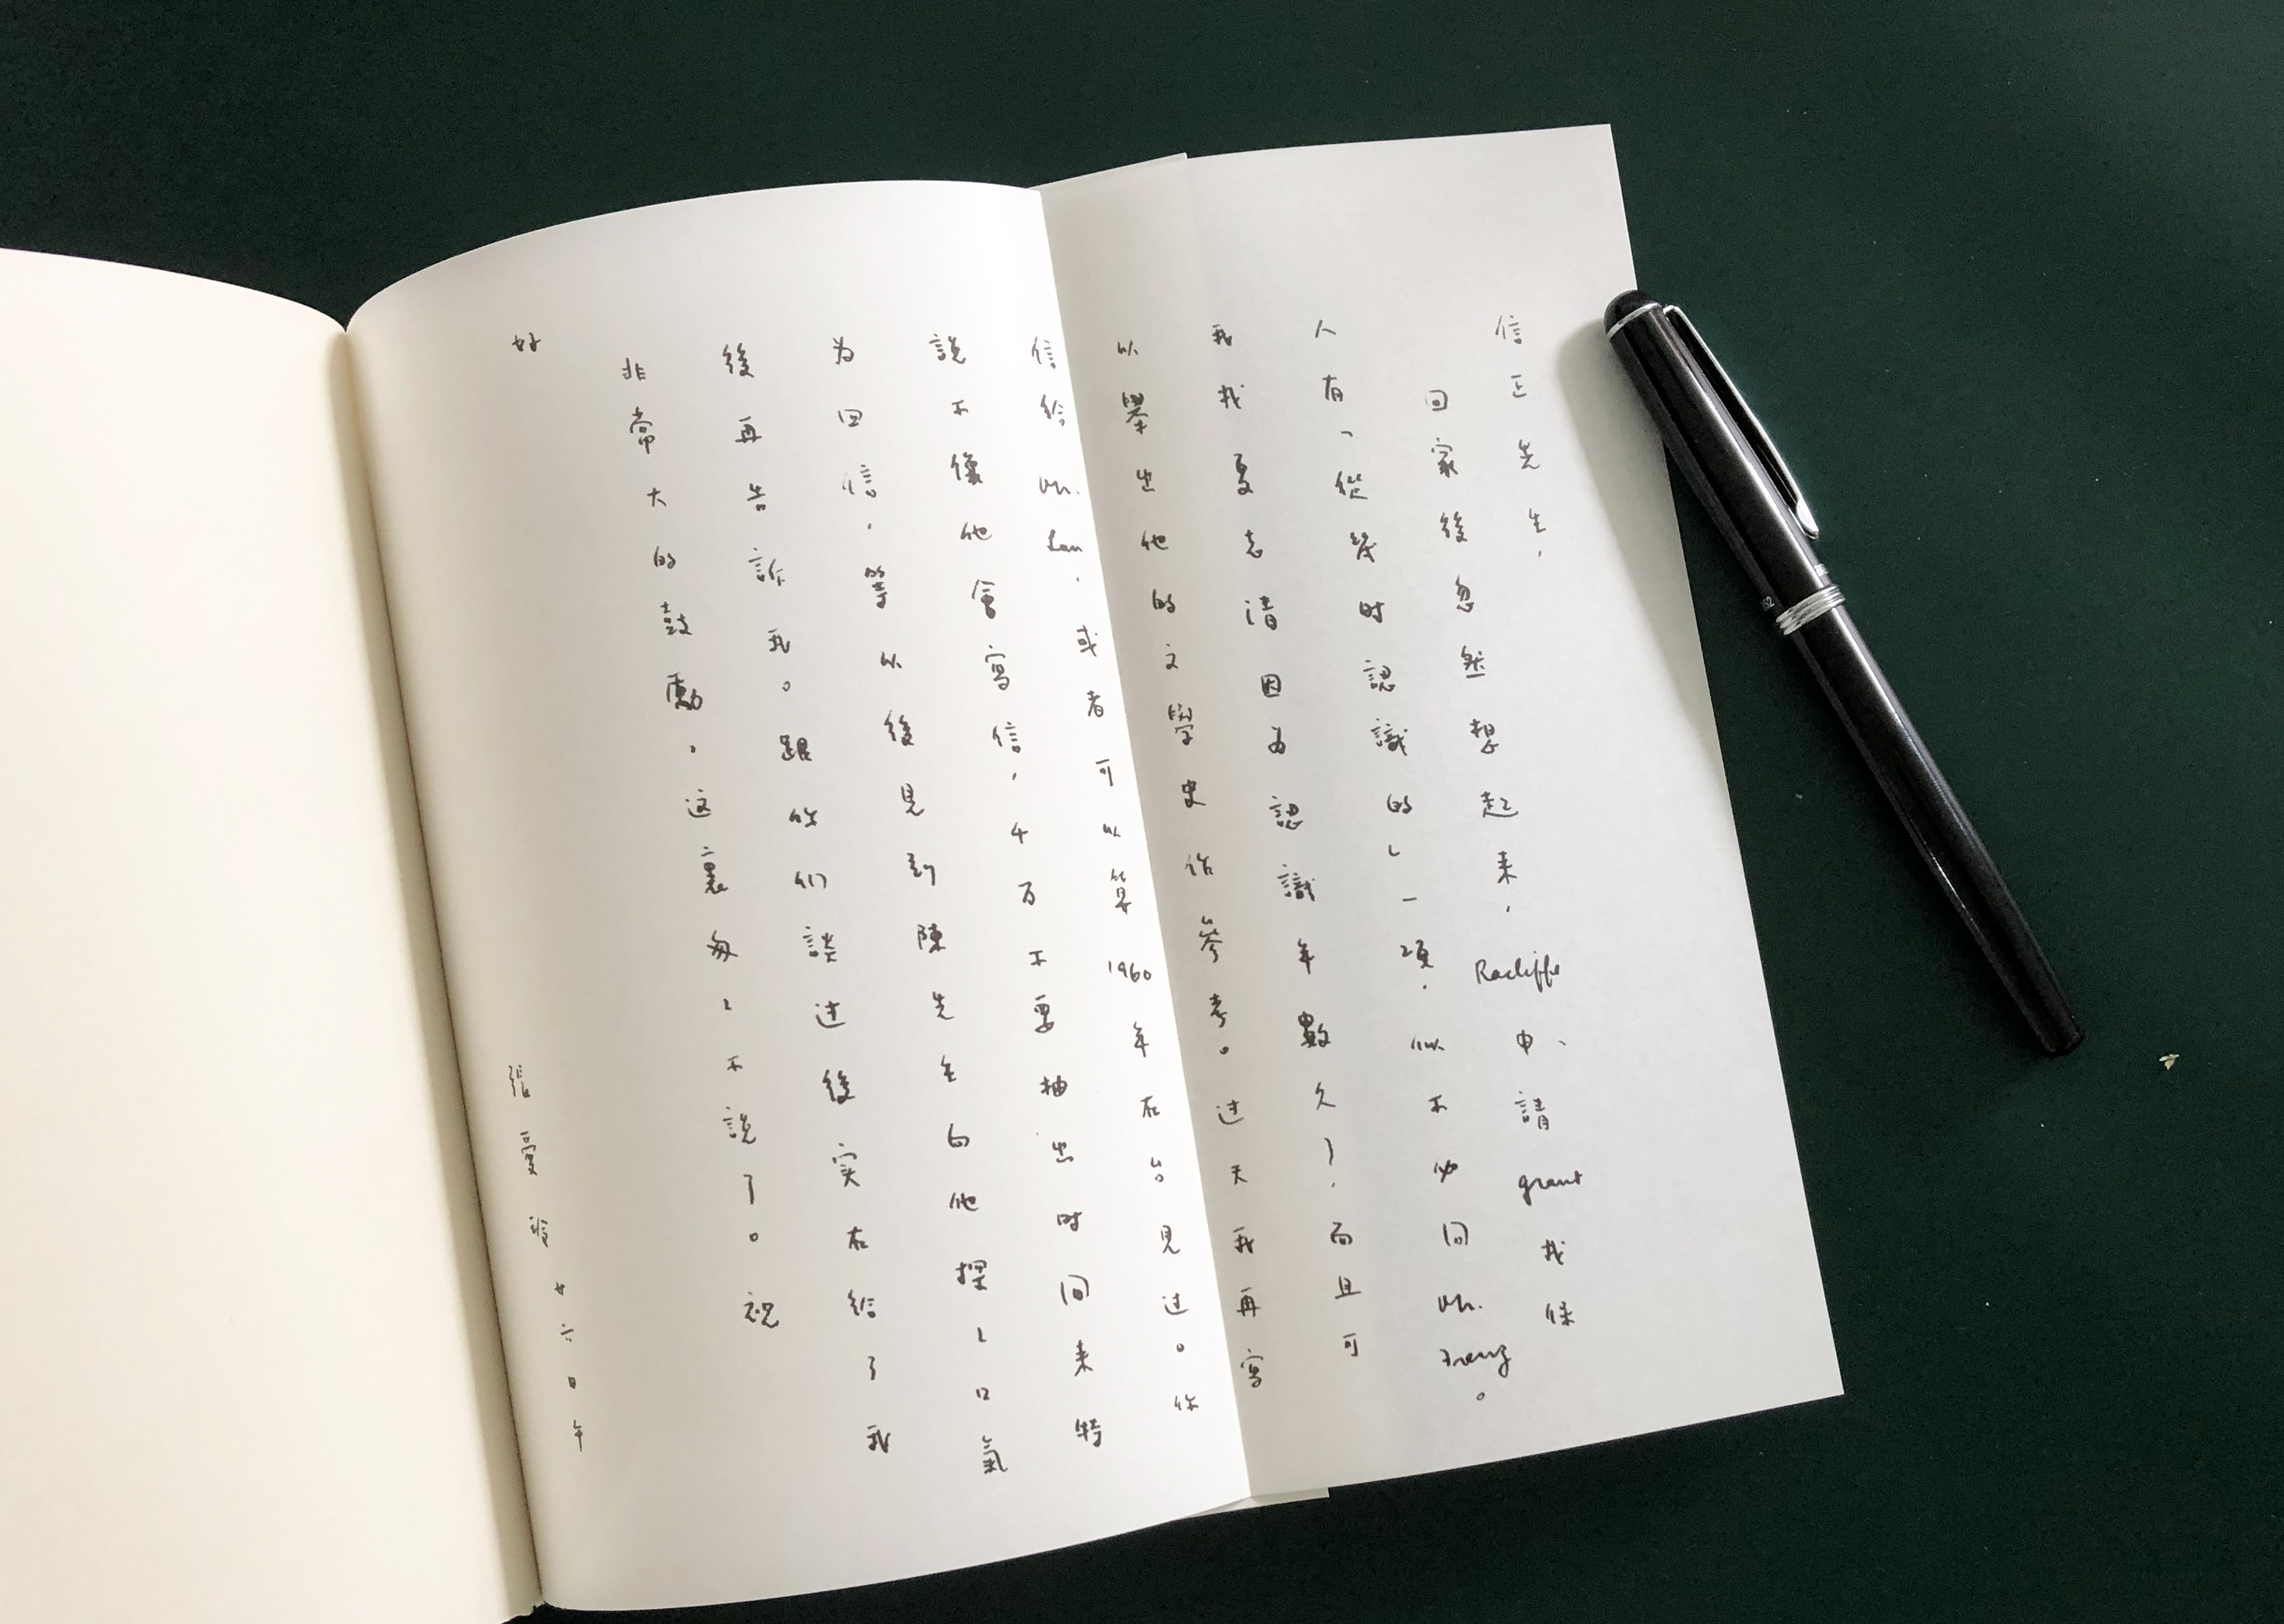 信正先生,
回家後忽然想起来,Racliffe申請grant找保
人有「從幾时認識的」一項,似不必问Mr. Frenz。
我找夏志清因为認識年數久了,而且可
以舉出他的文學史作參考。过天我再寫
信給Mr. Lau,或者可以算1960年在台見过。你
說不像他會寫信,千万不要抽出时间来特
为回信,等以後見到陳先生向他探〻口氣
後再告訴我。跟你们談过後实在給了我
非常大的鼓勵,这裏匆〻不說了。祝
好
張愛玲 廿六日午